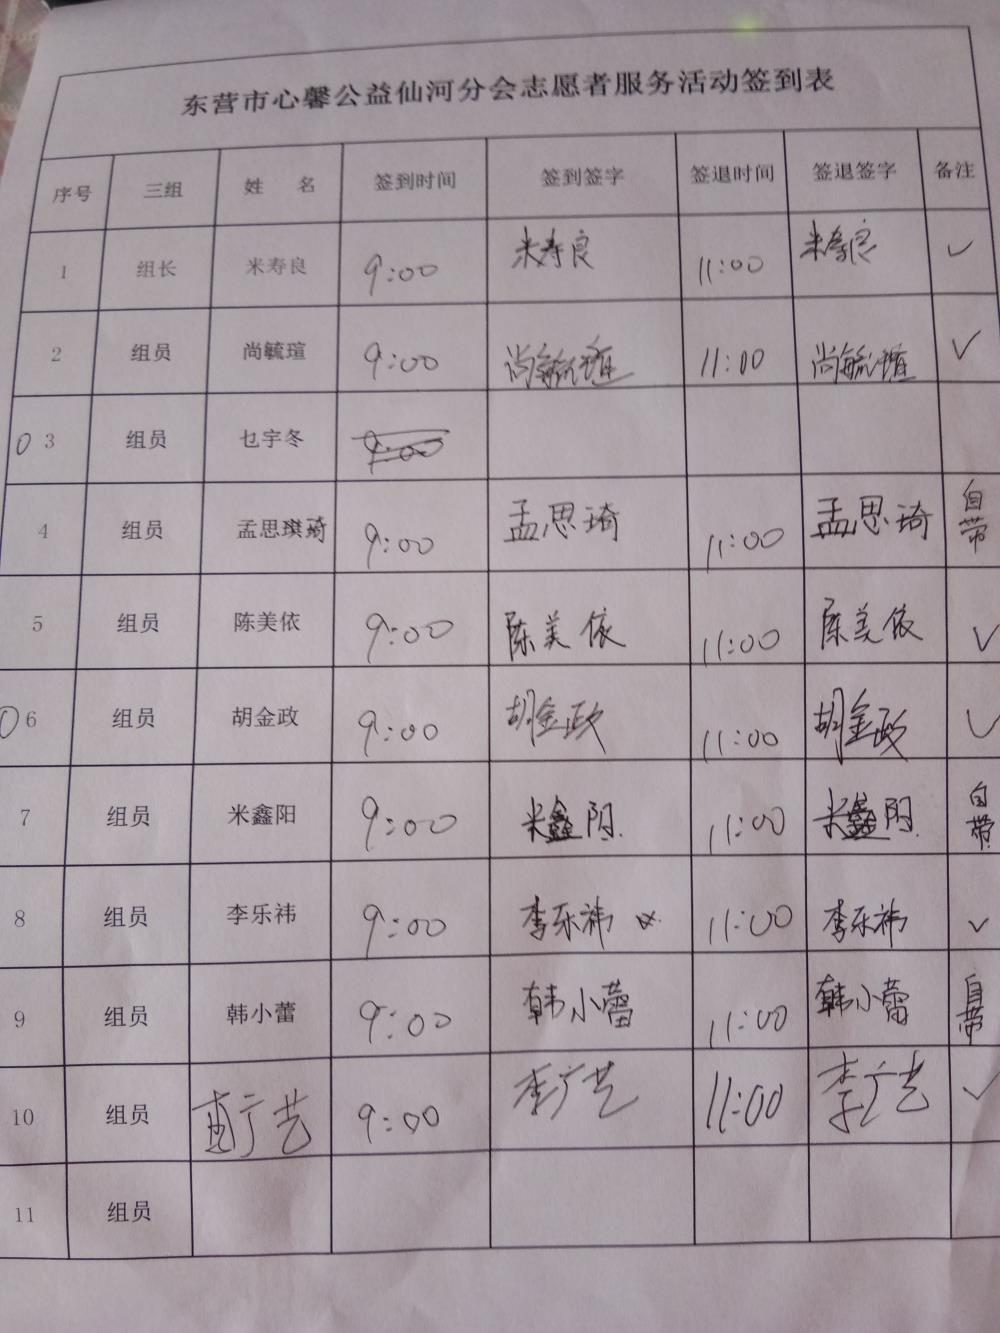 东营市心馨公益仙河分会志愿者服务活动签到表
序号 三组 姓 名 签到时间 签到签字 签退时间 签退签字 备注
1 组长 米寿良 9:00 米寿良 11:00 米寿良 ✓
2 组员 尚毓瑄 9:00 尚毓瑄 11:00 尚毓瑄 ✓
3 组员 乜宇冬 9:00
4 组员 孟思琪琦 9:00 孟思琦 11:00 孟思琦 自带
5 组员 陈美依 9:00 陈美依 11:00 陈美依 ✓
6 组员 胡金政 9:00 胡金政 11:00 胡金政 ✓
7 组员 米鑫阳 9:00 米鑫阳. 11:00 米鑫阳. 自带.
8 组员 李乐祎 9:00 李乐祎 11:00 李乐祎 ✓
9 组员 韩小蕾 9:00 韩小蕾 11:00 韩小蕾 自带
10 组员 广艺 9:00 李广艺 11:00 李广艺 ✓
11 组员